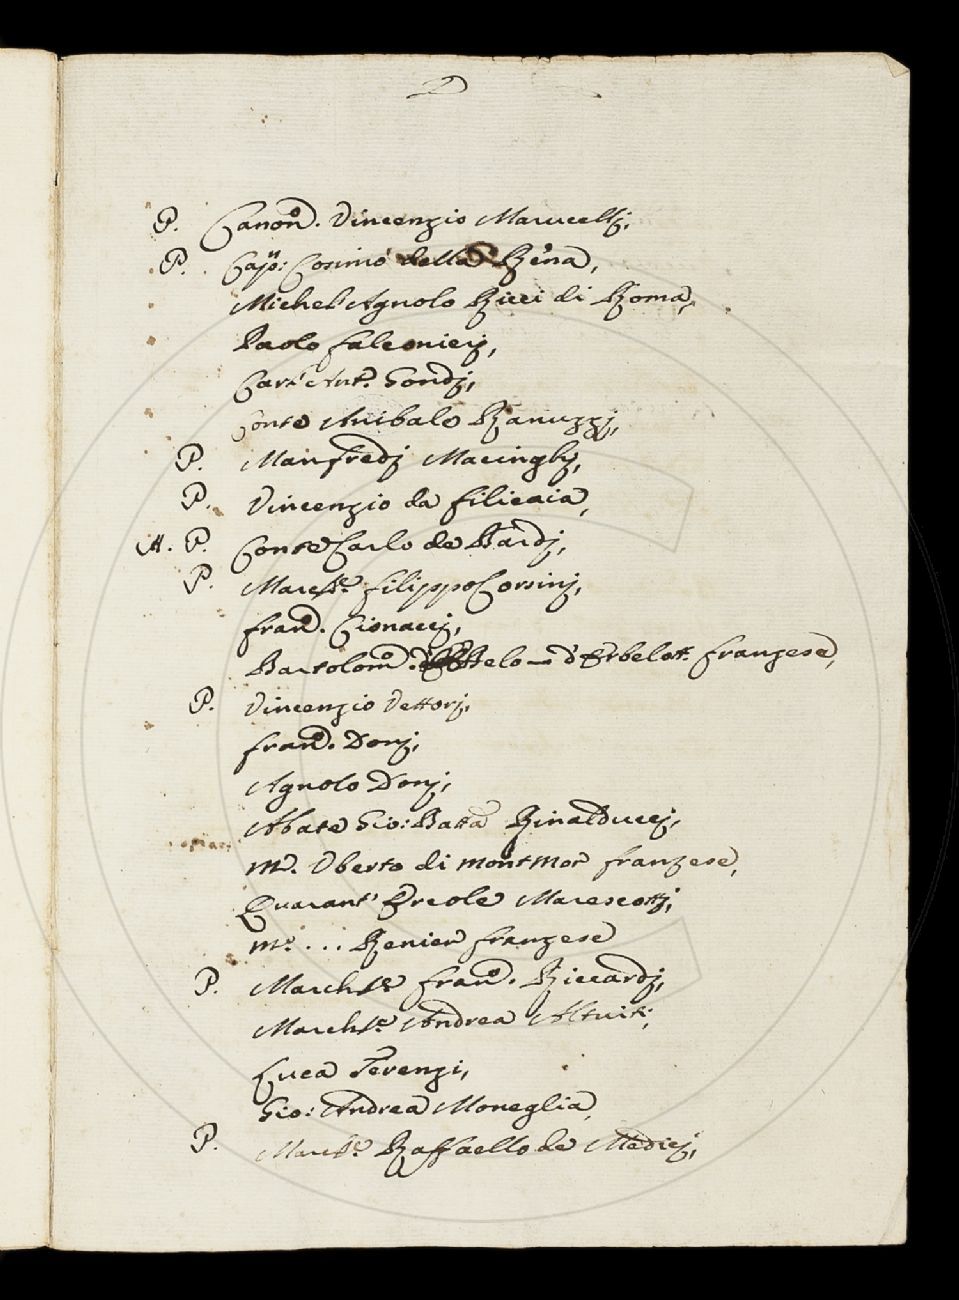 P. Canon.o Vincenzio Marucellj,
P. Cap.o: Cosimo della Rena,
Michel'Agnolo Ricci di Roma,
Paolo Falconierj,
Carl'Ant.o Gondj,
Conte Anibale Ranuzzj,
P. Manfredj Macinghj,
P. Vincenzio da Filicaia,
A. P. Conte Carlo de Bardj,
P. March.e Filippo Corsinj,
Fran.o Cionaccj,
Bartolom.o d'Erbelot. franzese,
P. Vincenzio Vettorj,
Fran.o Donj,
Agnolo Donj,
Abate Gio: Batta Rinalduccj,
M.r Uberto di Montmor franzese,
Quarant' Ercole Marescottj,
M.r ... Renier franzese
P. March.se Fran.o Riccardj,
March.se Andrea Altviti,
Luca Terenzi,
Gio: Andrea Moneglia,
P. March.e Raffaello de Medicj,